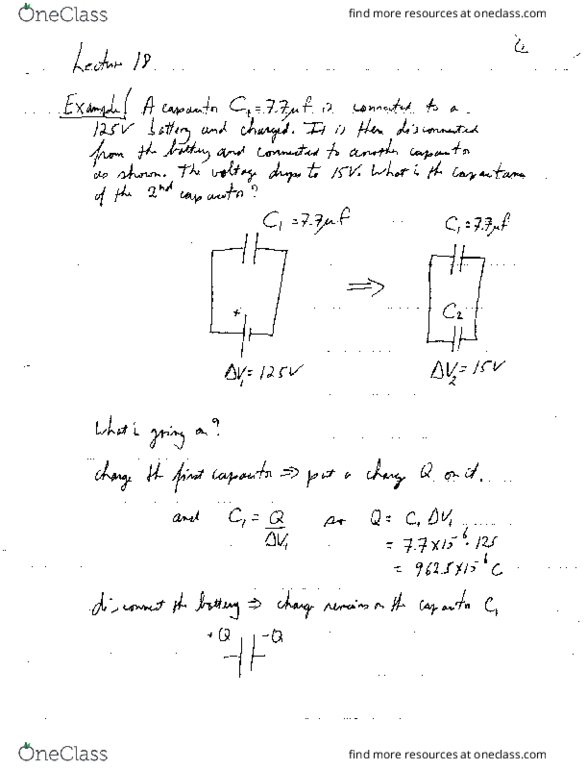 OneClass
find more resources at oneclass.com
Lecture 18
Example! A capacitor C₁ = 7.7μf is connected to a
125V battery and charged. It is then disconnected
from the battery and connected to another capacitor
as shown. The voltage drops to 15V. What is the capacitance
of the 2nd capacitor?
C₁ = 7.7μf
C₁ = 7.7μf
+
⇒
C₂
ΔV₁ = 125V
ΔV₂ = 15V
What is going on?
charge the first capacitor ⇒ put a charge Q on it.
and C₁ = Q/ΔV₁ so Q = C₁ ΔV₁
= 7.7×10⁻⁶·125
= 962.5×10⁻⁶ C
disconnect the battery ⇒ charge remains on the capacitor C₁
+Q -Q
OneClass
find more resources at oneclass.com